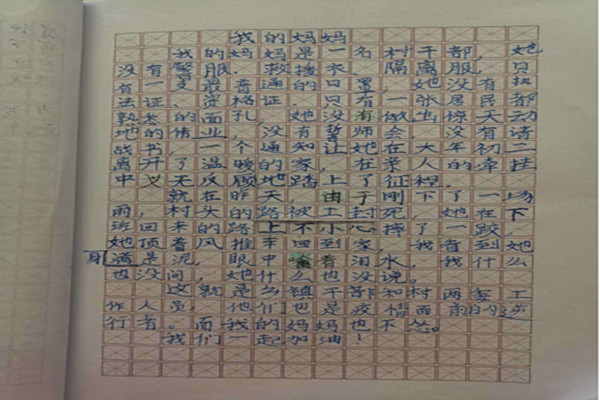 我的妈妈
我的妈妈是一名村干部，她
没有警服、救援衣、隔离服，只
有一麦最普通的口罩，她没有执
法证、资格证，只有一张居民都
熟悉的面孔，她没有一做出惊天动
地的伟业，没有誓师会，没有请
战书，一个通知让她在大年初二
离开了温暖的家，在亲人的牵挂
中义无反顾地踏上了征程。
就在昨天，由于刚下了一场
雨，村头的路被工封死，她在下
班回来的路上不小心摔了一跤，
她顶着风推车回到家，我看到她
身满是泥，眼中含着泪水，我什么
也没问，她什么也没说。
这就是乡镇干部和村两委工
作人员，他们也是疫情面前的逆
行者。而我的妈妈也不怂。
我们一起加油！